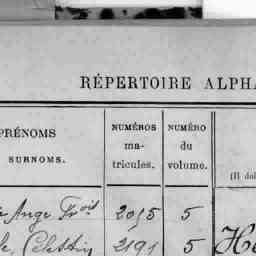 RÉPERTOIRE ALPHA
PRÉNOMS
SURNOMS.
NUMÉROS
ma-
tricules.
NUMÉRO
du
volume.
(Il doi
Ange Frois 2015 5
Célestin 2191 5